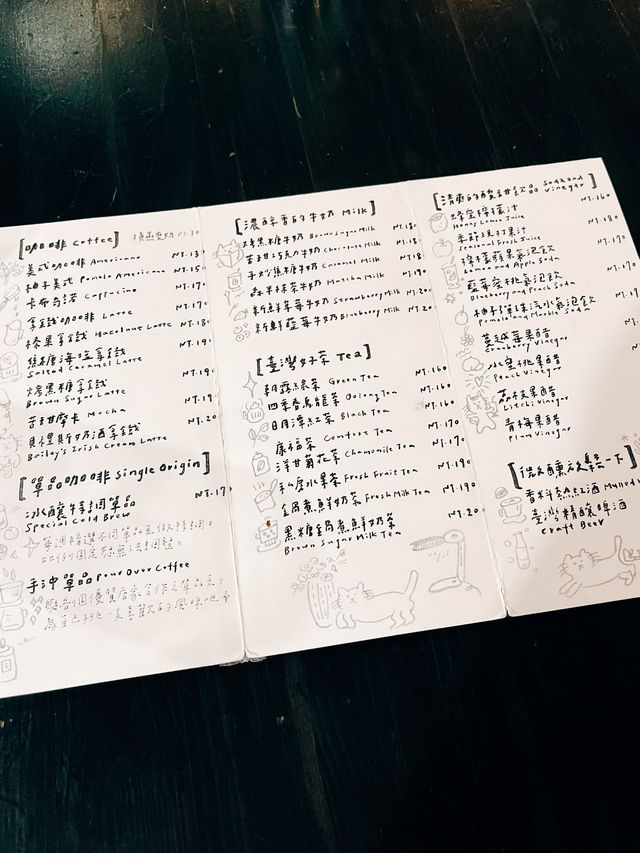 [咖啡 Coffee]
換燕麥奶 NT.30
美式咖啡 Americano NT.13
柚子美式 Pomelo Americano NT.15
卡布奇諾 Cappucino NT.17
拿鐵咖啡 Latte NT.17
榛果拿鐵 Hazelnut Latte NT.18
焦糖海塩拿鐵 NT.19
Salted Caramel Latte
烤黑糖拿鐵 NT.19
Brown Sugar Latte
苦甜摩卡 Mocha NT.19
貝禮斯奶酒拿鐵 NT.20
Bailey's Irish Cream Latte
[單品咖啡 Single Origin]
冰釀特調單品 NT.17
Special Cold Brew
手沖單品 Pour Over Coffee
[濃醇香的牛奶 Milk]
烤黑糖牛奶 Brown Sugar Milk NT.18
苦甜巧克力牛奶 Chocolate Milk NT.18
手炒焦糖牛奶 Caramel Milk NT.18
森半抹茶牛奶 Matcha Milk NT.19
新鮮草莓牛奶 Strawberry Milk NT.20
新鮮藍莓牛奶 Blueberry Milk NT.20
[臺灣好茶 Tea]
朝露綠茶 Green Tea NT.160
四季春烏龍茶 Oolong Tea NT.160
日月潭紅茶 Black Tea NT.160
康福茶 Comfore Tea NT.170
洋甘菊花茶 Chamomile Tea NT.170
私房水果茶 Fresh Fruit Tea NT.190
金屬煮鮮奶茶 Fresh Milk Tea NT.190
黑糖金屬煮鮮奶茶 NT.20
Brown Sugar Milk Tea
[清爽的酸甜飲品 Soda and Vinegar]
蜂蜜檸檬汁 NT.160
Honey Lemon Juice
季節現打果汁 NT.180
Seasonal Fresh Juice
檸檬蘋果氣泡飲 NT.170
Lemon and Apple Soda
藍莓蜜桃氣泡飲 NT.170
Blueberry and Peach Soda
柚子彈珠汽水氣泡飲 NT.17
Pomelo and Marble Soda
蔓越莓果醋
Cranberry Vinegar
水蜜桃果醋
Peach Vinegar
荔枝果醋
Litchi Vinegar
青梅果醋
Plum Vinegar
香料熱紅酒 Mulled
臺灣精釀啤酒
Craft Beer